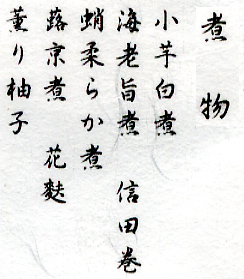 煮物
小芋白煮
海老旨煮 信田巻
蛸柔らか煮
蕗京煮 花麩
薫り柚子